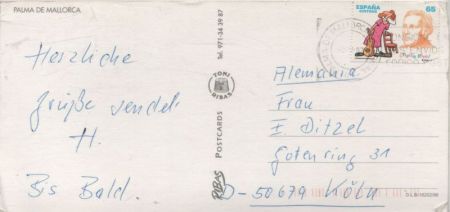 PALMA DE MALLORCA
Herzliche
Grüße sendet
H.
Bis Bald.
Tel. 971-34 39 87
TONI
RIBAS
POSTCARDS
RIBAS
ESPAÑA
CORREOS
65
Alemania
Frau
E. Ditzel
Gotenring 31
D-50679 KÖLN